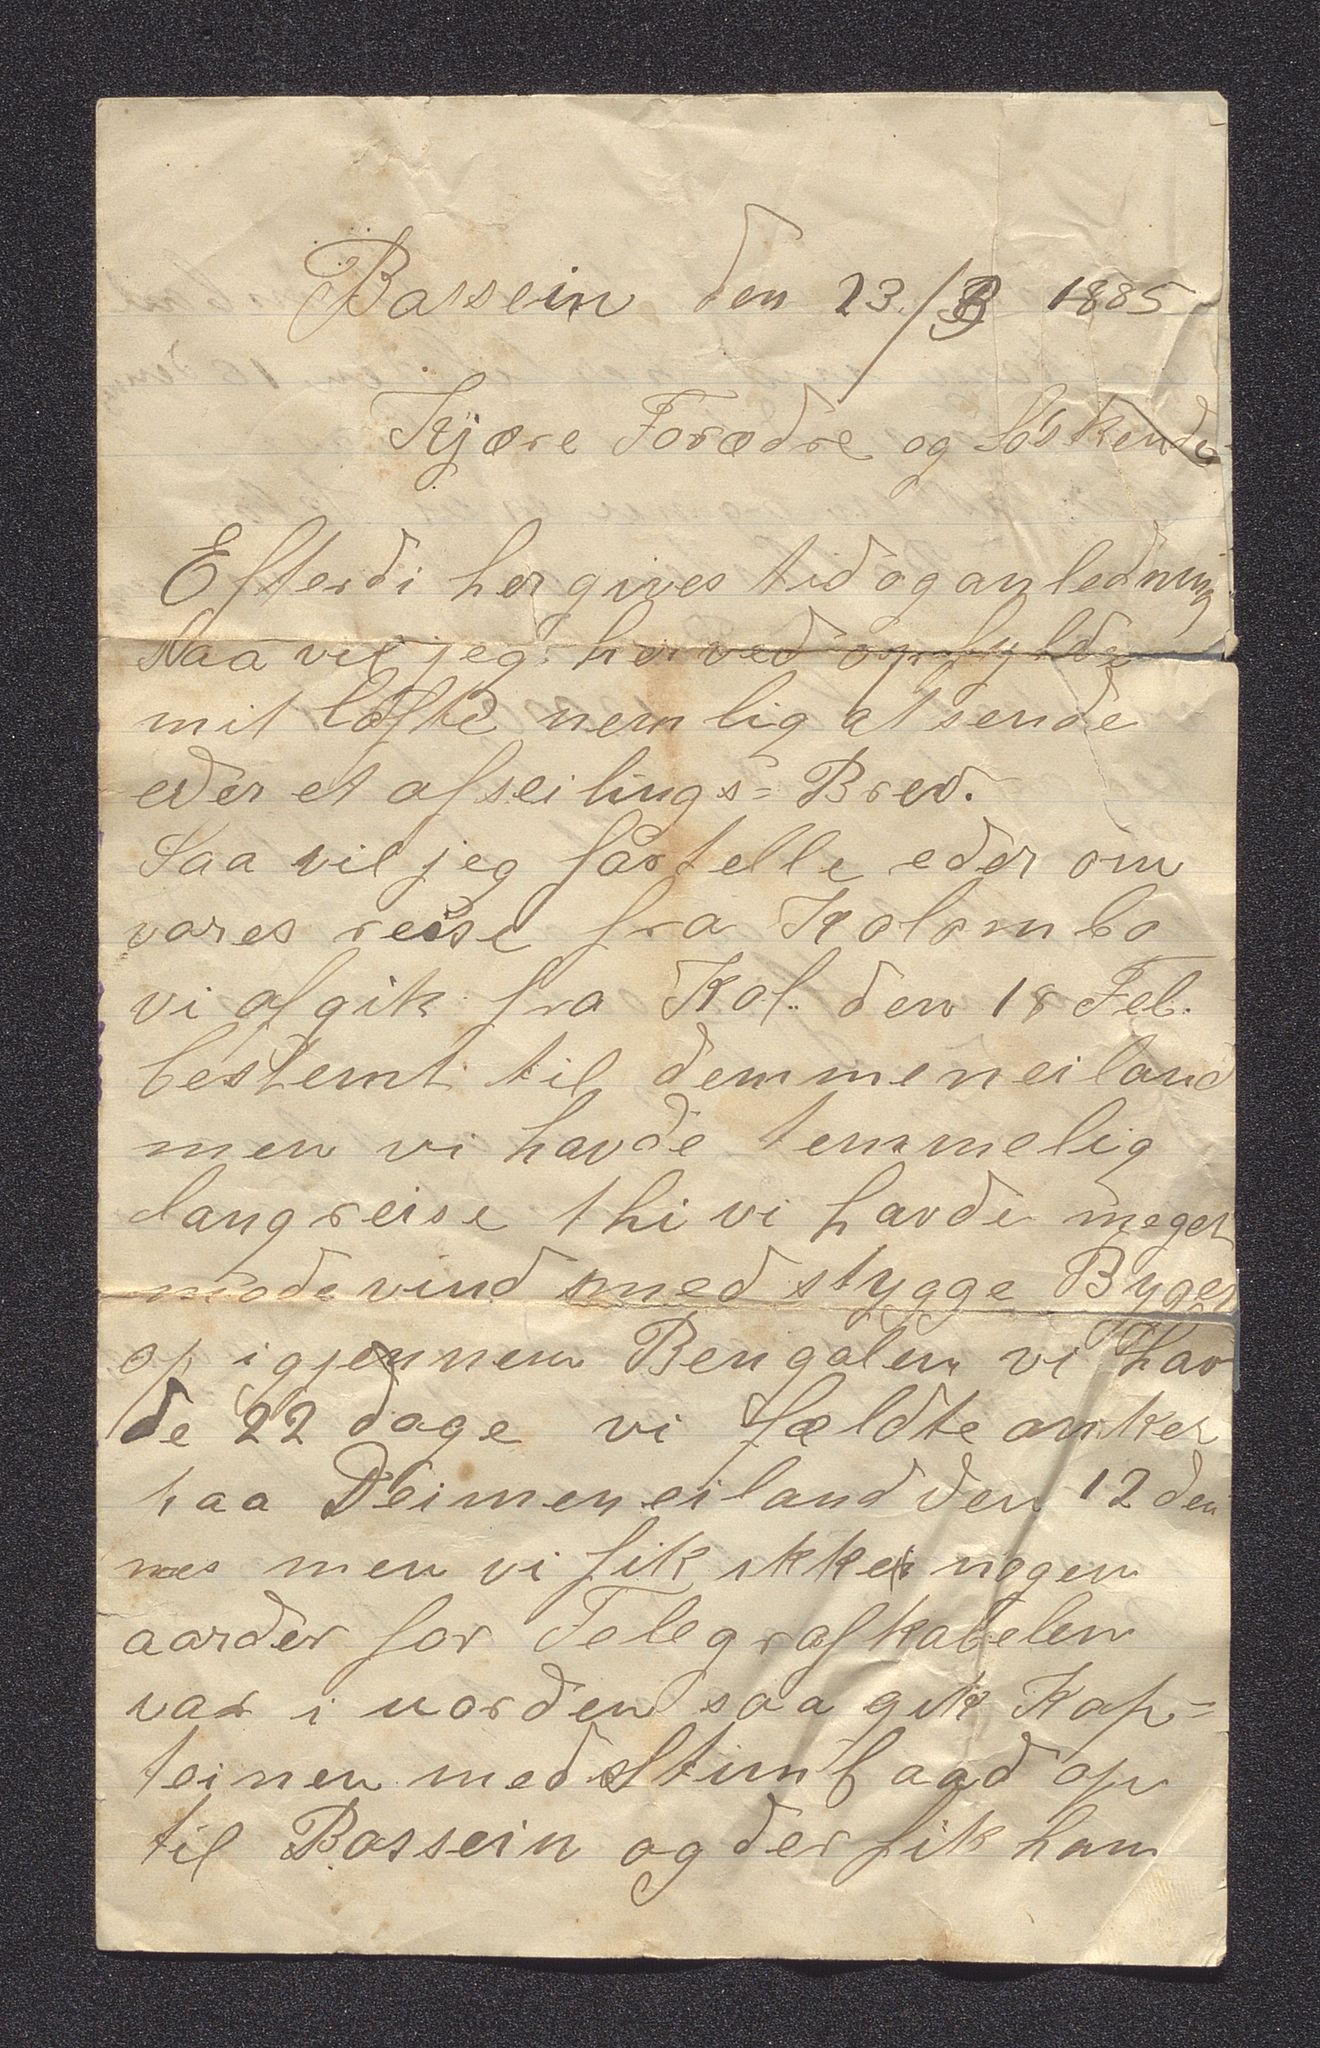 Bassein den 23./3 1885
Kjære Forædre og Søskende
Efterdi her gives tid og anledning
saa vil jeg her ved opfylde
mit løfte nemlig at sende
eder et afseilings= Brev.
Saa vil jeg fårtelle eder om
vores reise fra Kolombo
vi afgik fra Kol. den 18 Feb.
bestemt til demmeneiland
men vi havde temmelig
lang reise thi vi havde meget
modevind med stygge Byger
op igjennem Bengalen vi hav
de 22 dage vi fældte anker
paa Deimeneiland den 12 den
nes men vi fik ikke nogen
aarder for Telegrafkabelen
var i uorden saa gik Kap=
teinen med Stimbaad op
til Bassein og der fik ham